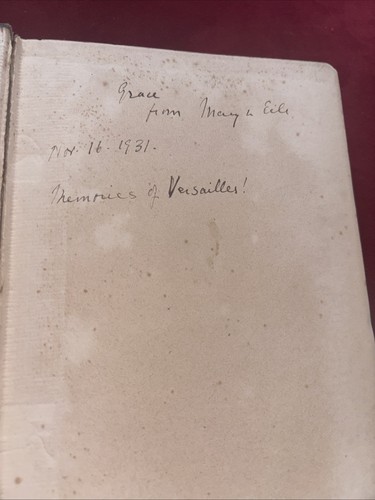 Grace
from May &
Nov. 16. 1931.
Memories of Versailles!